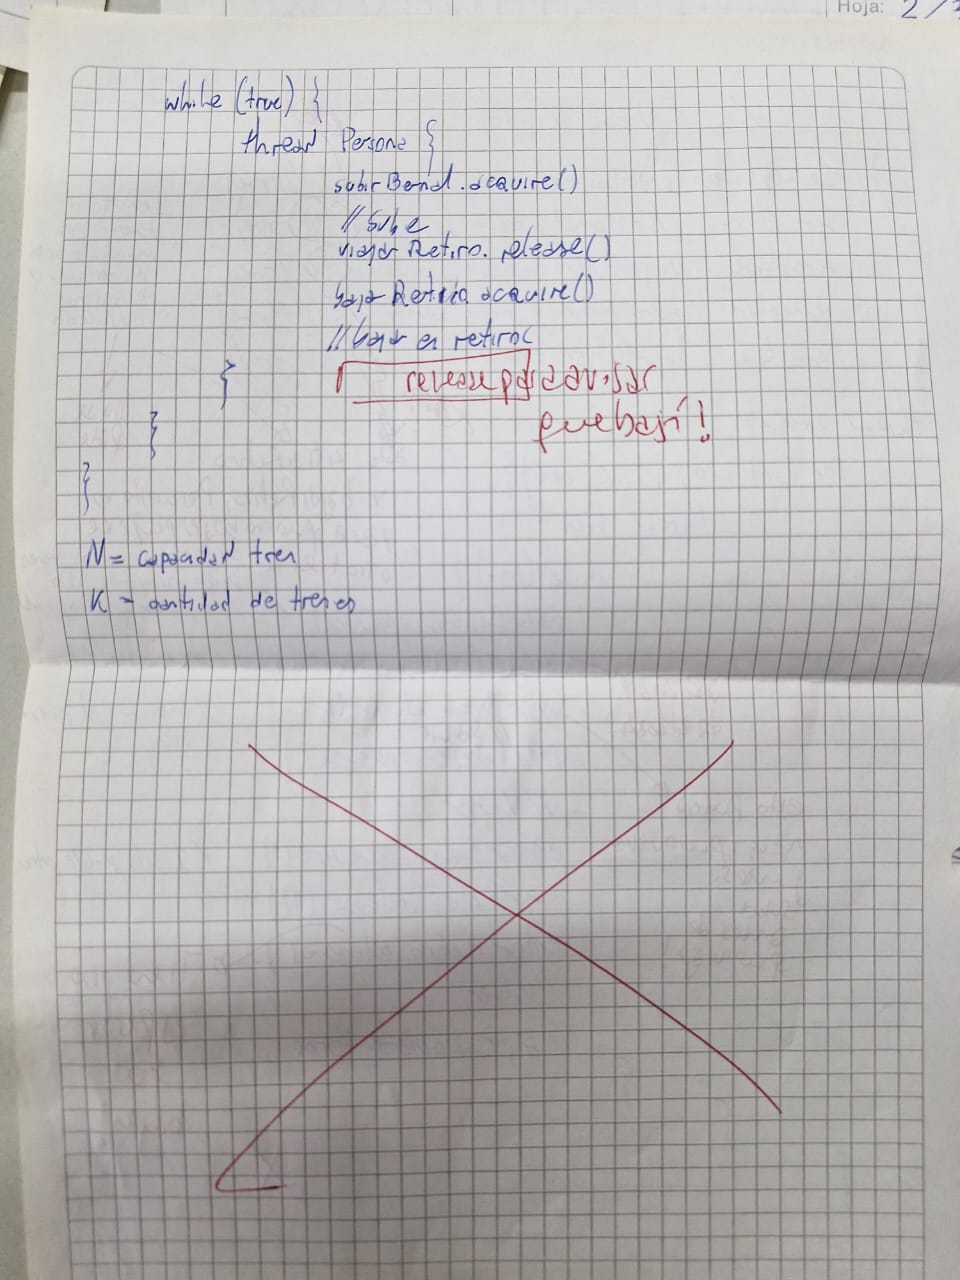 Hoja: 2/3
while (true) {
thread Persona {
subirBernal.acquire()
// Sube
viajar Retiro. release()
bajar Retiro. acquire()
// baja en retiro
} release para avisar
que bajé!
}
}
N = capacidad tren
K = cantidad de trenes